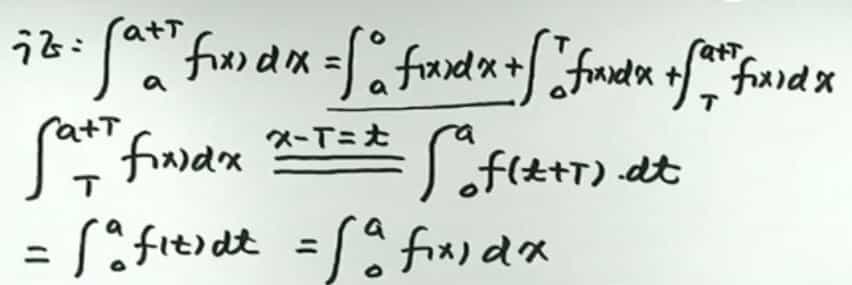 证: ∫_a^{a+T} f(x)dx = ∫_a^0 f(x)dx + ∫_0^T f(x)dx + ∫_T^{a+T} f(x)dx
∫_T^{a+T} f(x)dx \xlongequal{x-T=t} ∫_0^a f(t+T).dt
= ∫_0^a f(t)dt = ∫_0^a f(x)dx